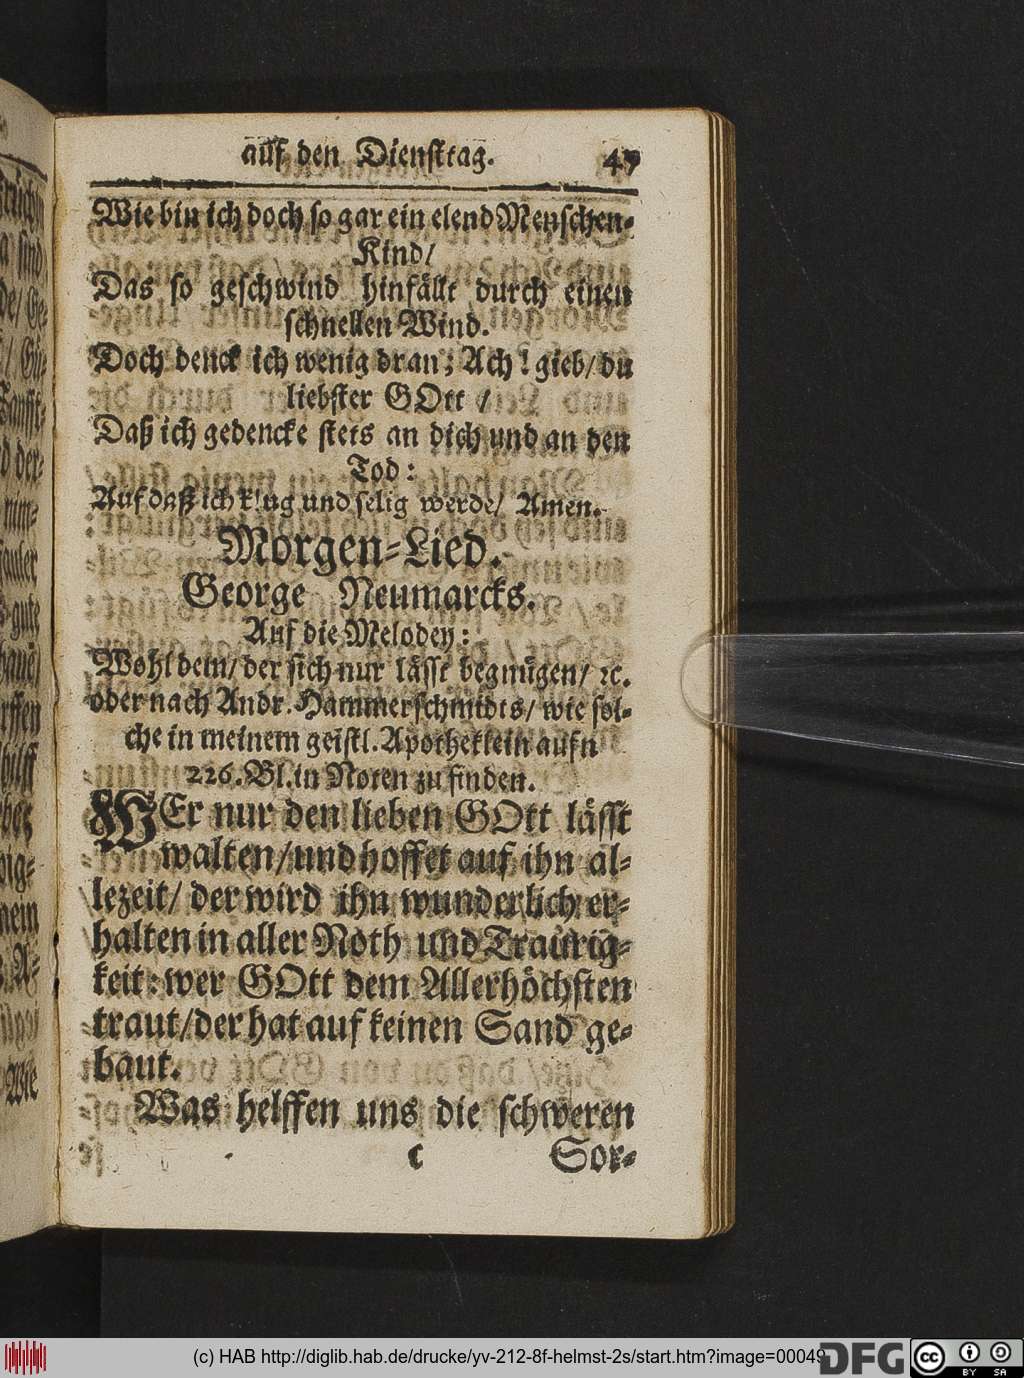 auf den Dienstag. 49
Wie bin ich doch so gar ein elend Menschen-
Kind/
Das so geschwind hinfällt durch einen
schnellen Wind.
Doch denck ich wenig dran; Ach! gieb/ du
liebster GOtt /
Daß ich gedencke stets an dich und an den
Tod:
Auf daß ich klug und selig werde/ Amen.
Morgen-Lied.
George Neumarcks.
Auf die Melodey:
Wohl dem/ der sich nur lässt begnügen/ ꝛc.
oder nach Andr. Hammerschmidts/ wie sol-
che in meinem geistl. Apothecklein aufn
226. Bl. in Noten zu finden.
WEr nur den lieben GOtt lässt
walten/ und hoffet auf ihn al-
lezeit/ der wird ihn wunderlich er-
halten in aller Noth und Traurig-
keit: wer GOtt dem Allerhöchsten
traut/ der hat auf keinen Sand ge-
baut.
Was helffen uns die schweren
C Sor-
(c) HAB http://diglib.hab.de/drucke/yv-212-8f-helmst-2s/start.htm?image=00049
DFG
cc BY SA